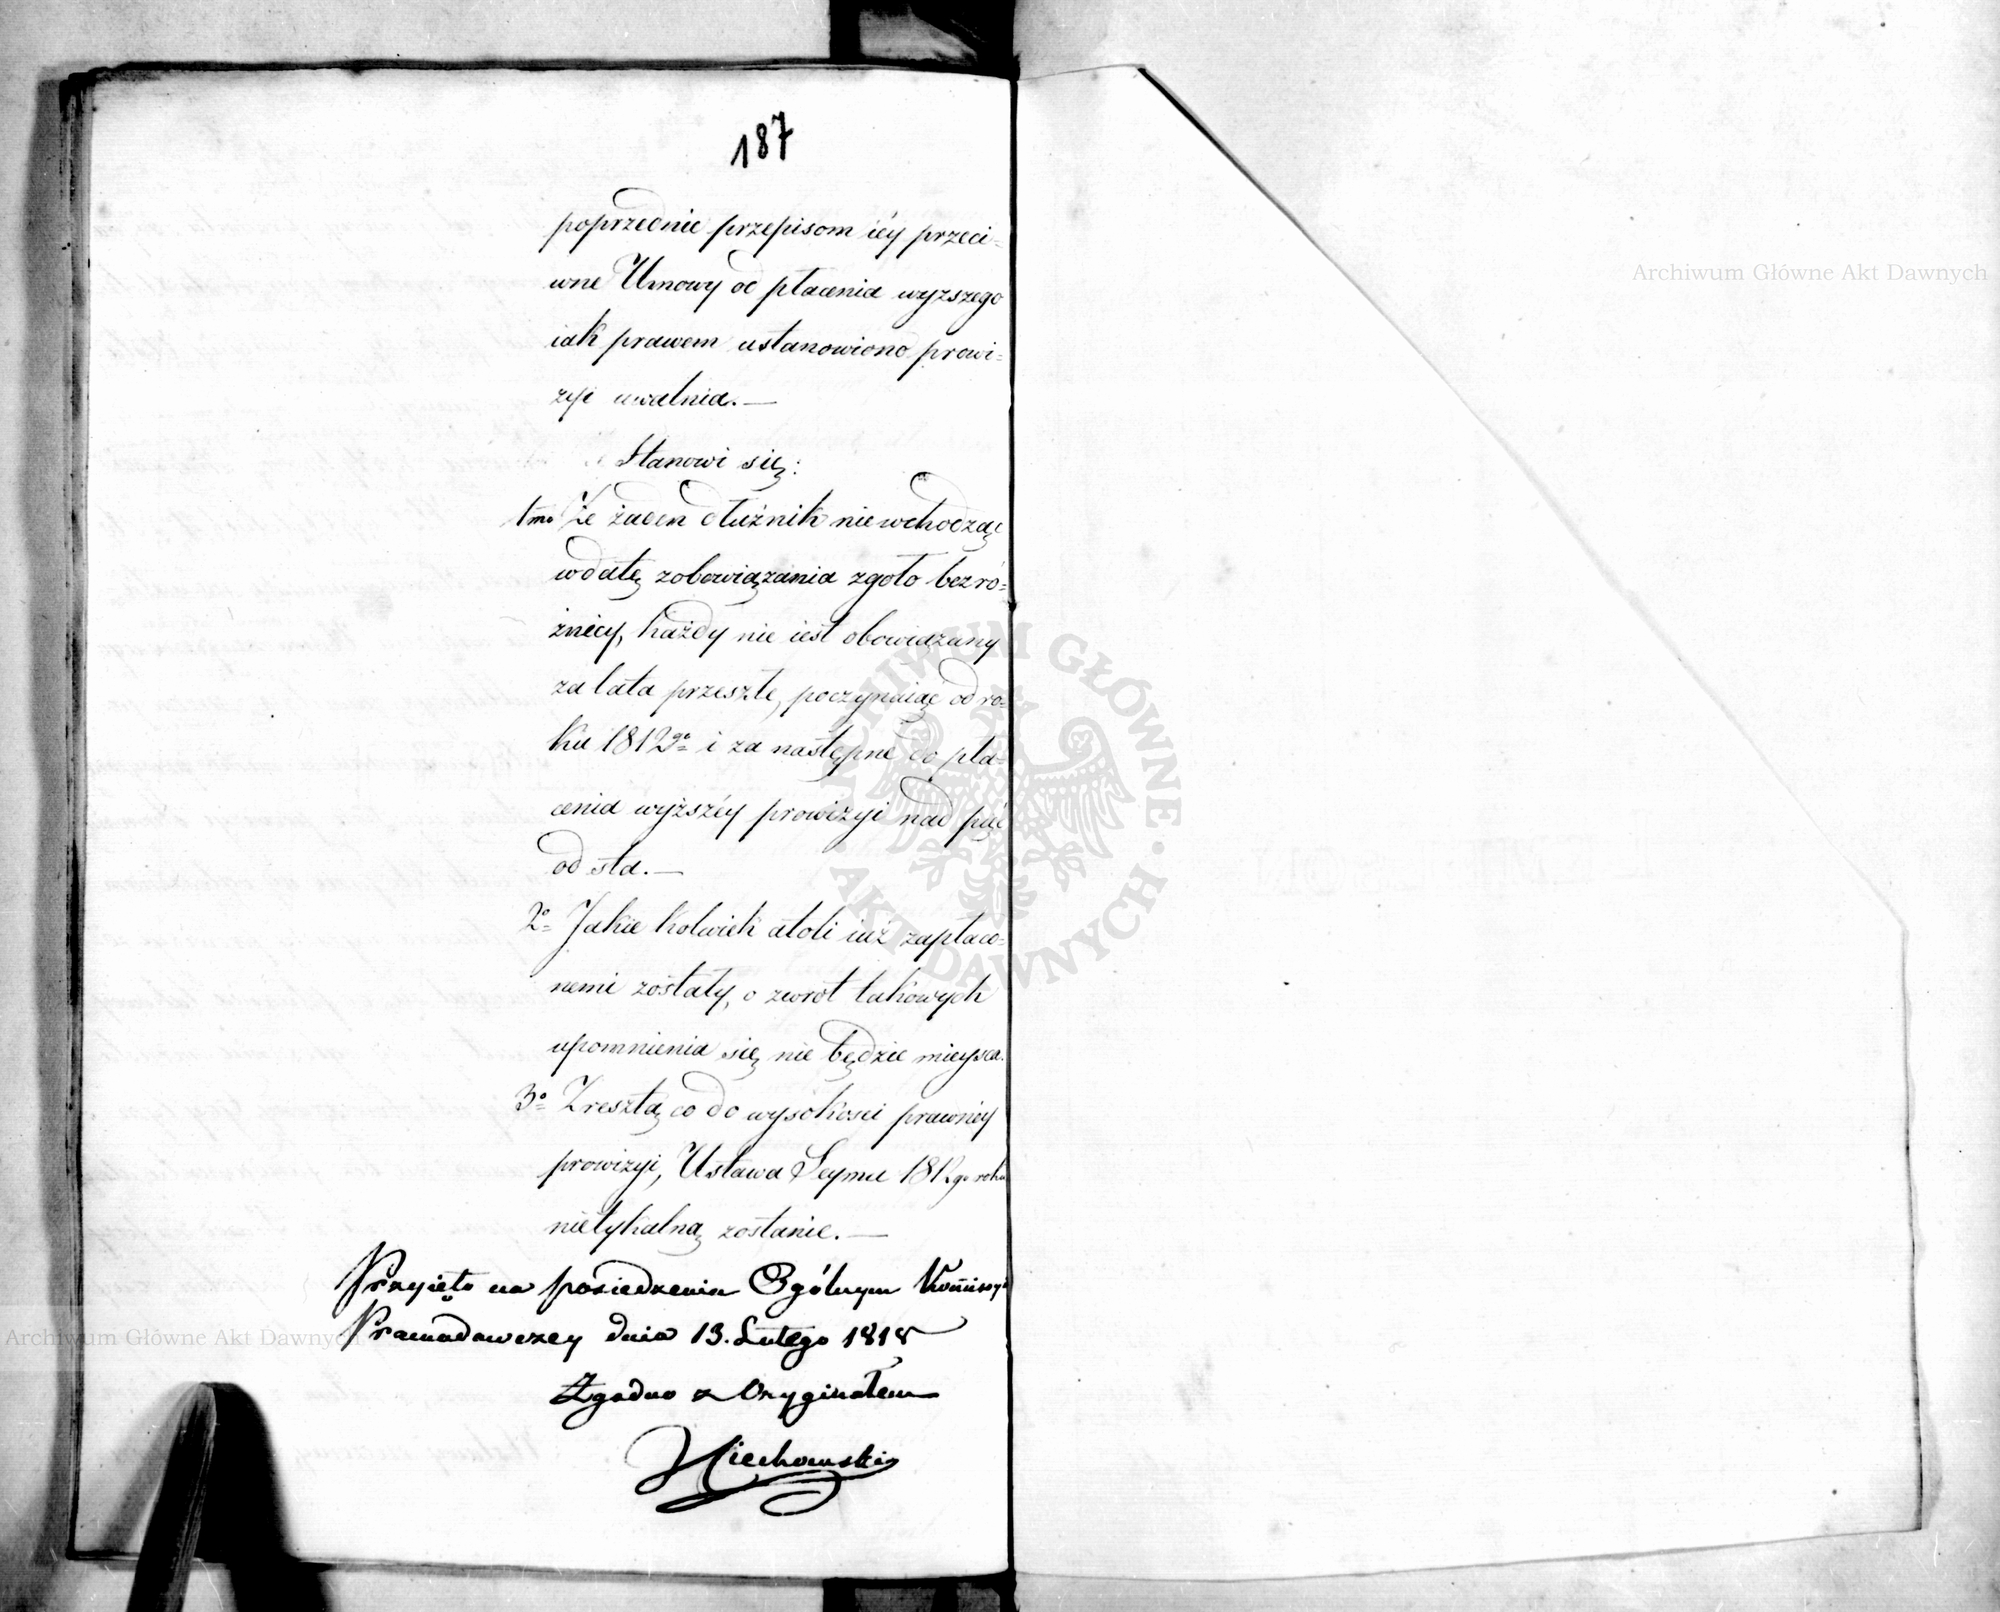 187
poprzednie przepisom iéy przeci-
wne Umowy od płacenia wyższego
iak prawem ustanowiono prowi-
zyi uwalnia.—
Stanowi się:
1mo Że żaden dłużnik niewchodząc
w datę zobowiązania zgoło bez ró-
żnicy, każdy nie iest obowiązany
za lata przeszłe, poczynaiąc od ro-
ku 1812go i za następne do pła-
cenia wyższéy prowizyi nad pięć
od sta.—
2o Jakie kolwiek atoli iuż zapłaco-
nemi zostały, o zwrot takowych
upomnienia się nie będzie mieysca.
3o Zresztą co do wysokosci prawnéy
prowizyi, Ustawa Seymu 1812go roku
nietykalną zostanie.—
Przyięto na posiedzeniu Ogólnym Kommisyi
Prawodawczey dnia 13. Lutego 1818
Zgodno z Oryginałem
Archiwum Główne Akt Dawnych
Archiwum Główne Akt Dawnych
ARCHIWUM GŁÓWNE · AKT DAWNYCH ·